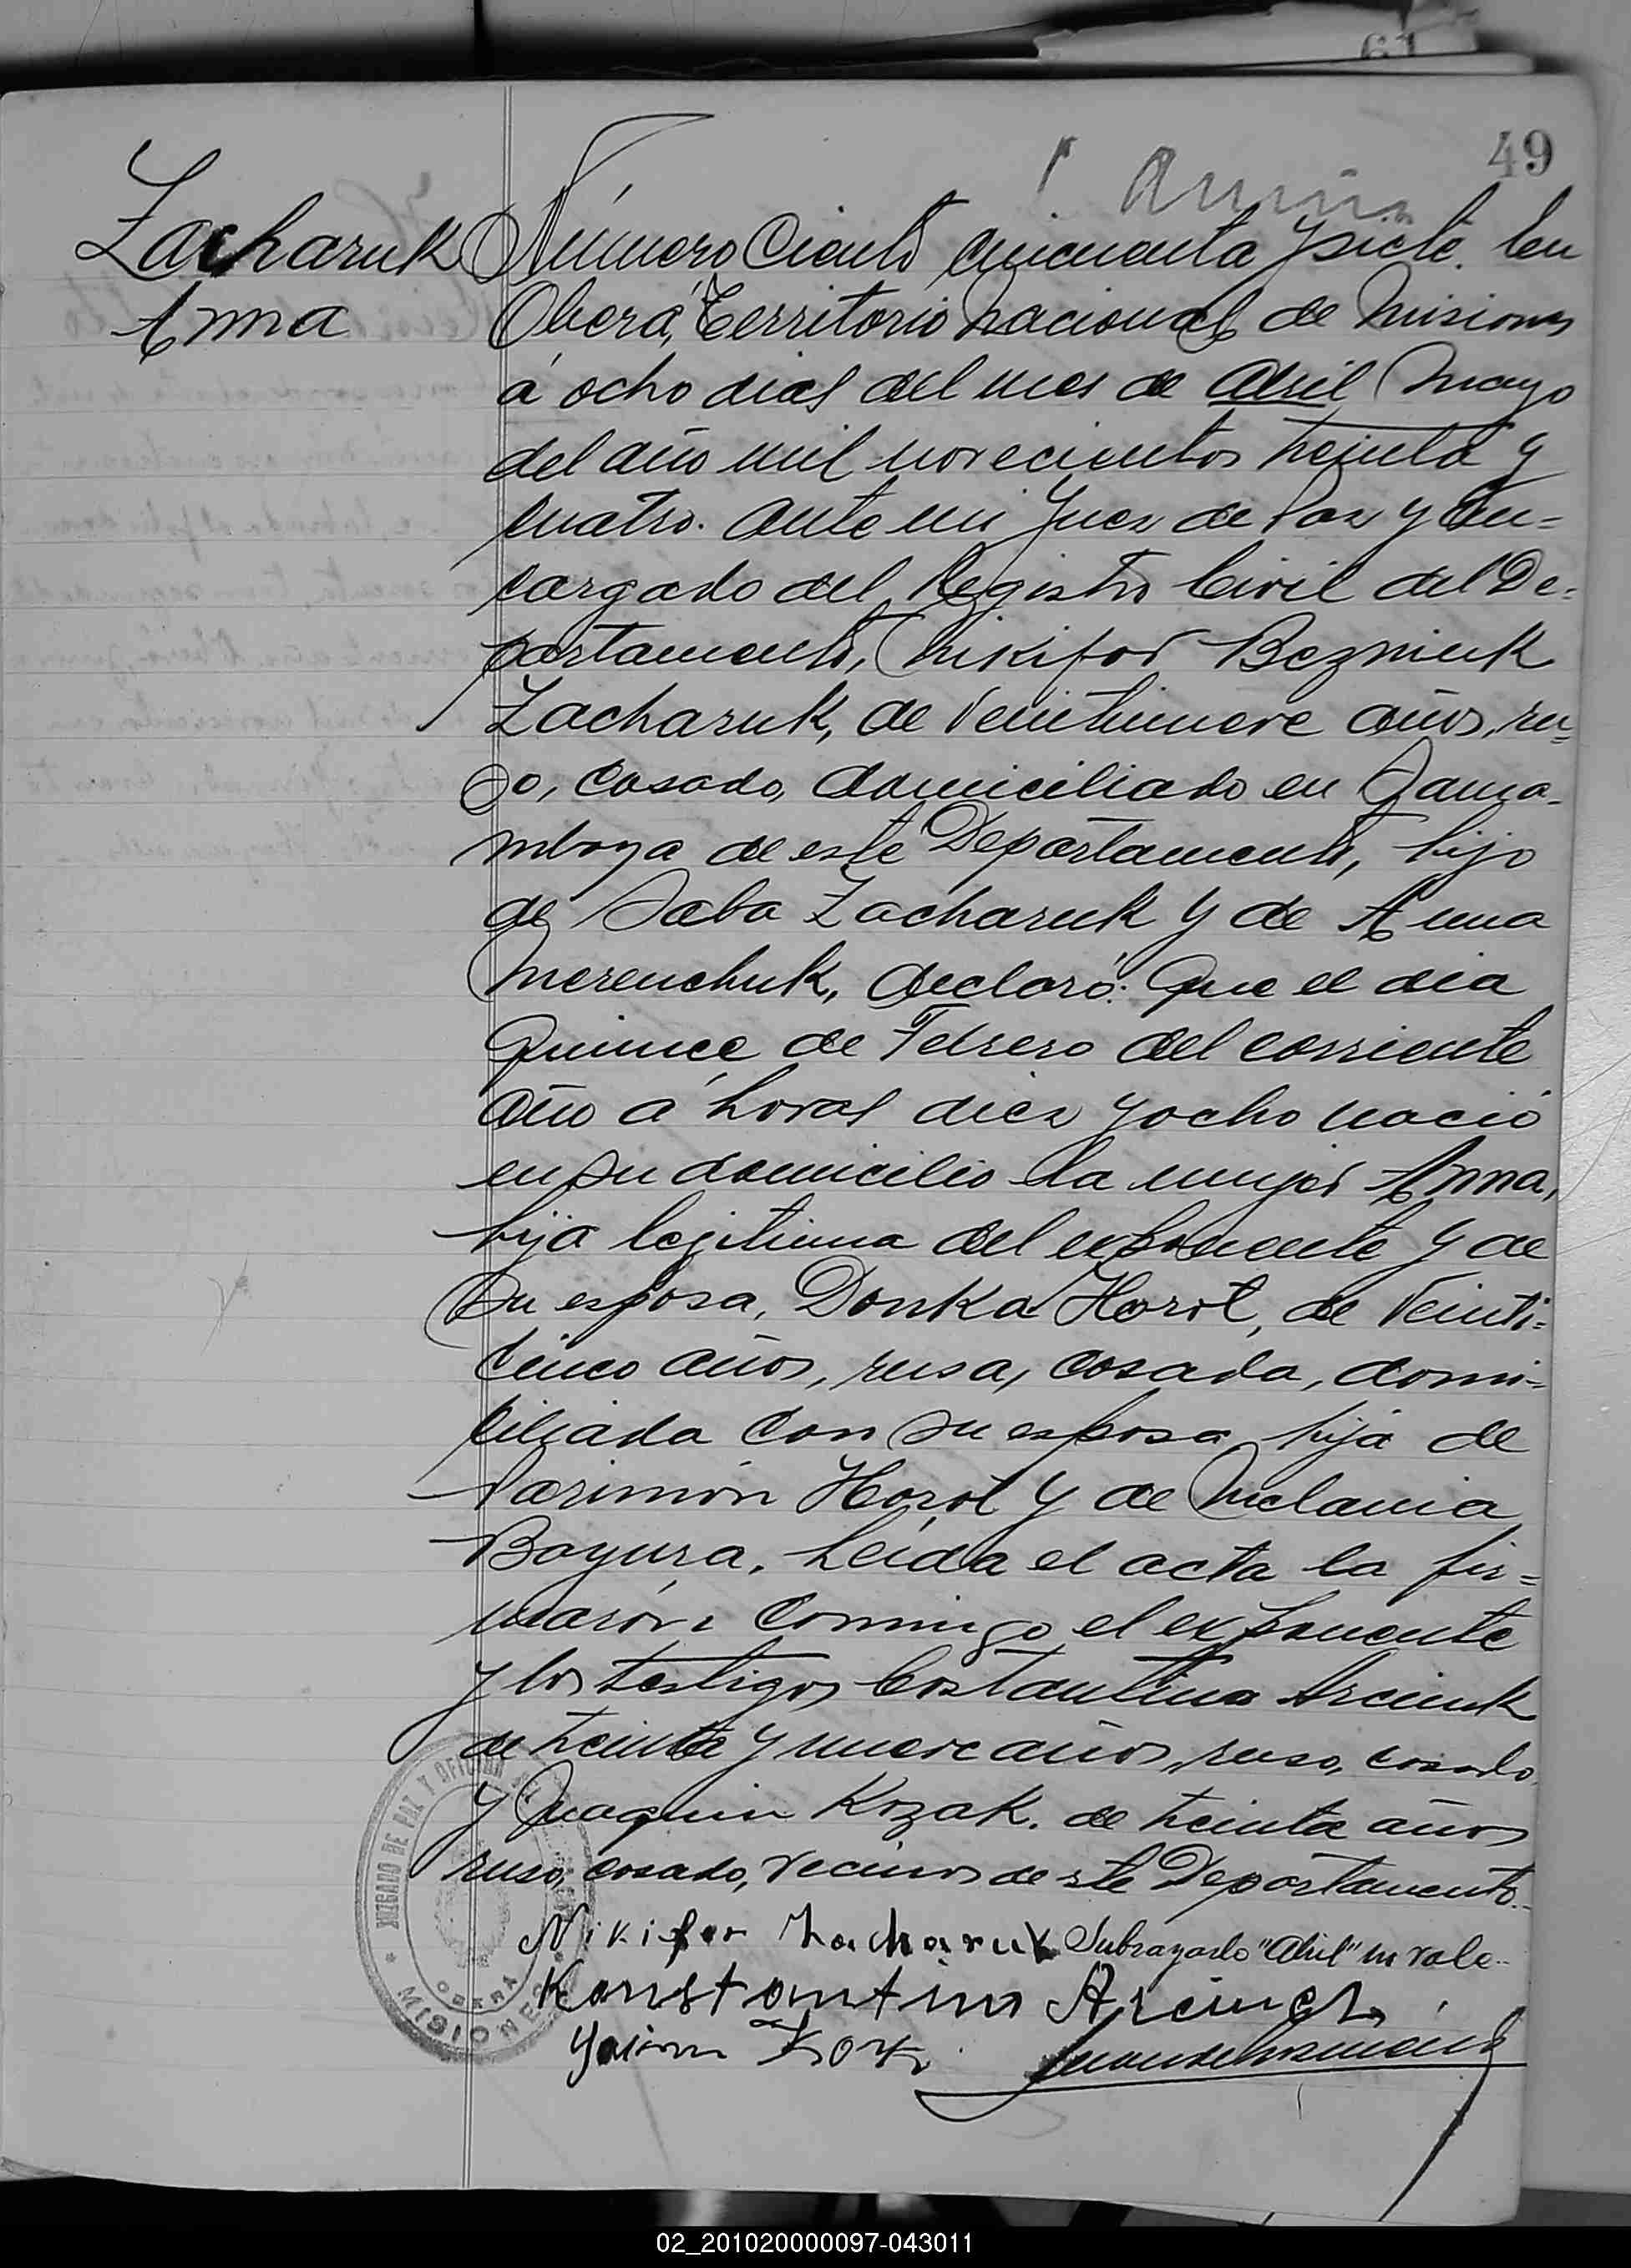 49
Zacharuk
Anna
Número Ciento cincuenta y siete. En
Oberá, Territorio Nacional de Misiones
á ocho dias del mes de Abril Mayo
del año mil novecientos treinta y
cuatro. Ante mi Juez de Paz y En=
cargado del Registro Civil del De=
partamento, Nikifor Bezniuk
Zacharuk, de veintinueve años, ru=
so, casado, domiciliado en Yama-
mboya de este Departamento, hijo
de Saba Zacharuk y de Anna
Merenchuk, declaró: Que el dia
Quince de Febrero del corriente
año á horas diez y ocho nació
en su domicilio la mujer Anna,
hija legitima del exponente y de
su esposa, Donka Horot, de veinti=
cinco años, rusa, casada, domi=
ciliada con su esposo, hija de
Parimón Horot y de Melania
Boyura. Leida el acta la fir=
marón conmigo el exponente
y los testigos Costantino Arciuk
de treinta y nueve años, ruso, casado,
y Joaquin Kozak. de treinta años
ruso, casado, vecinos de este Departamento.-
Nikifor Zacharuk Subrayado "Abril" no vale.-
Konstantin
JUZGADO DE PAZ Y OFICINA
OBERA
MISIONES
02_201020000097-043011